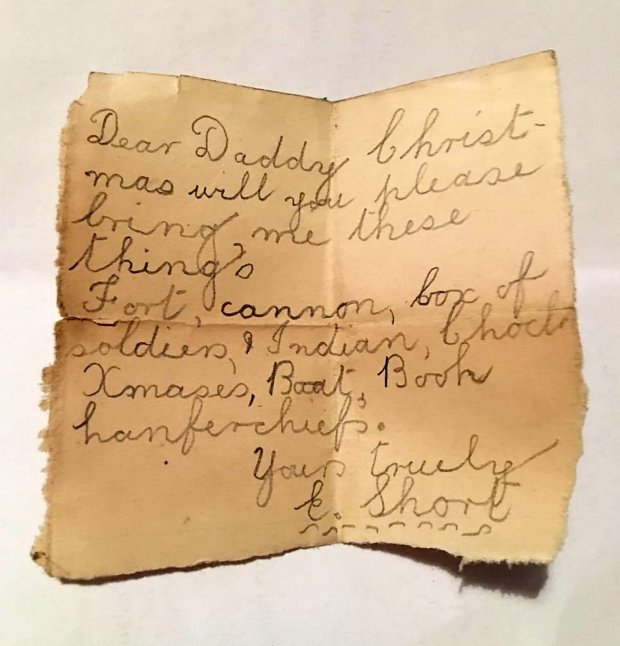 Dear Daddy Christ-
mas will you please
bring me these
thing's
Fort, cannon, box of
soldiers, & Indian,
Xmases, Boat, Book
hanferchiefs.
Yours truely
E. Short